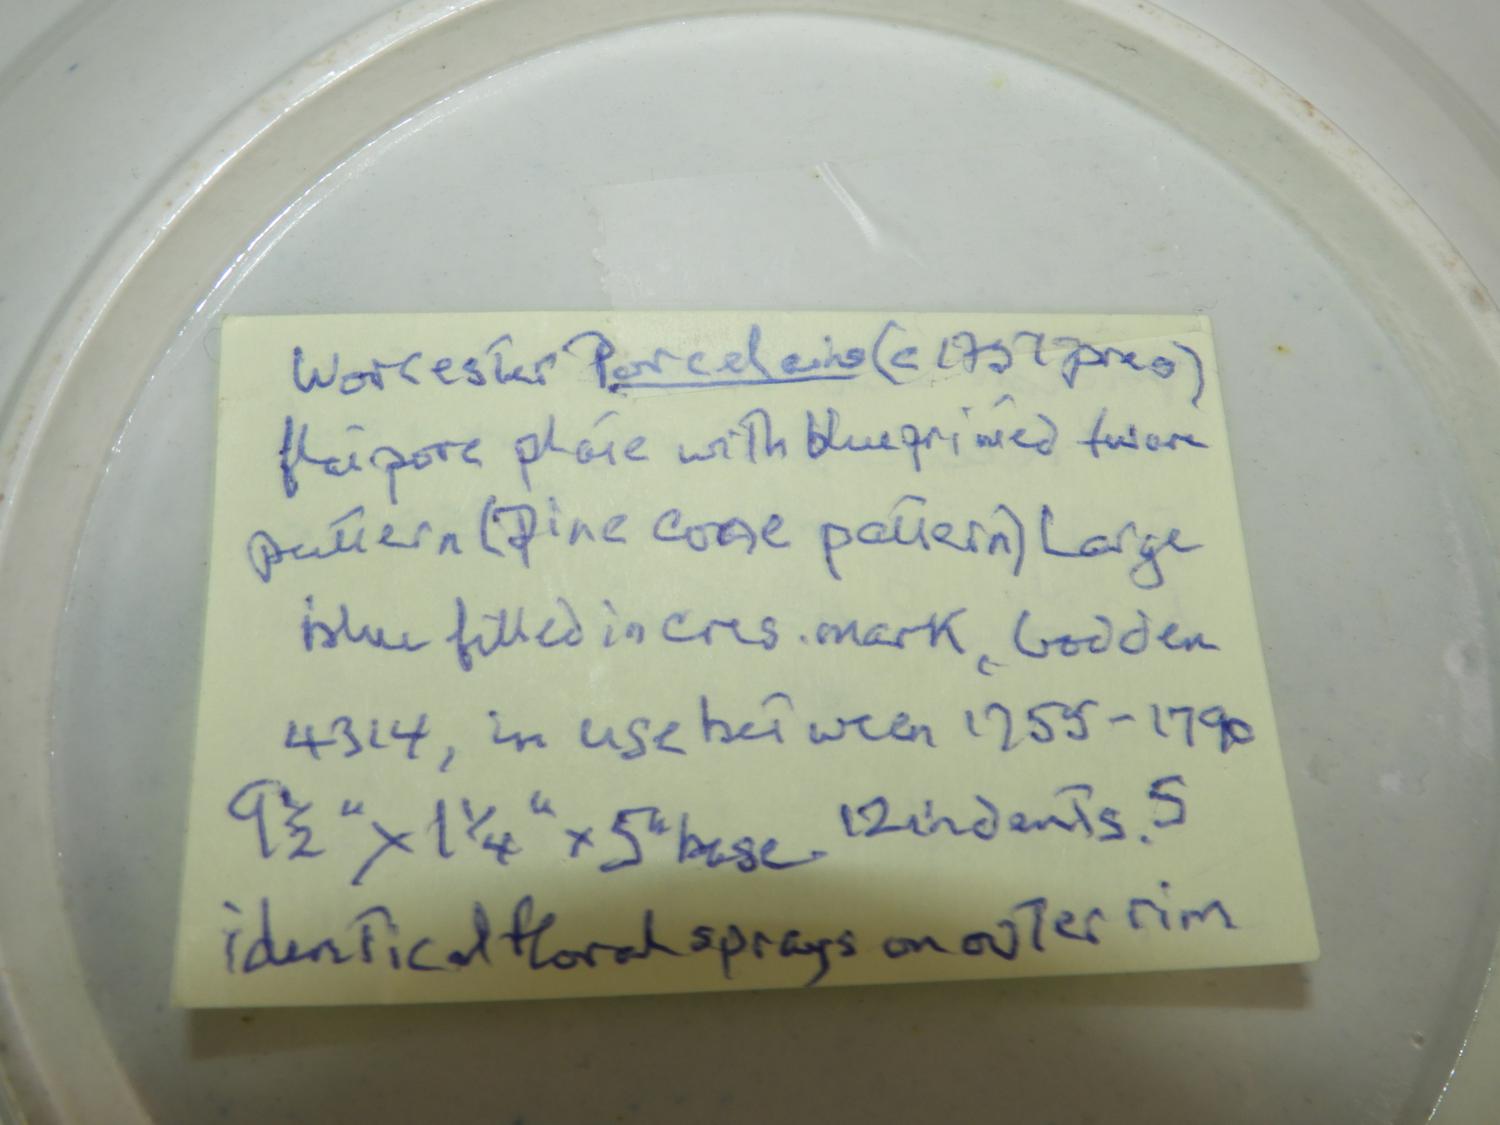 Worcester Porcelains (c 1757
plate with blue
pattern (Pine cone pattern) Large
blue filled in cres. mark, Godden
4314, in use between 1755-1790
9½" x 1¼" x 5" base. 12 indents. 5
identical floral sprays on outer rim